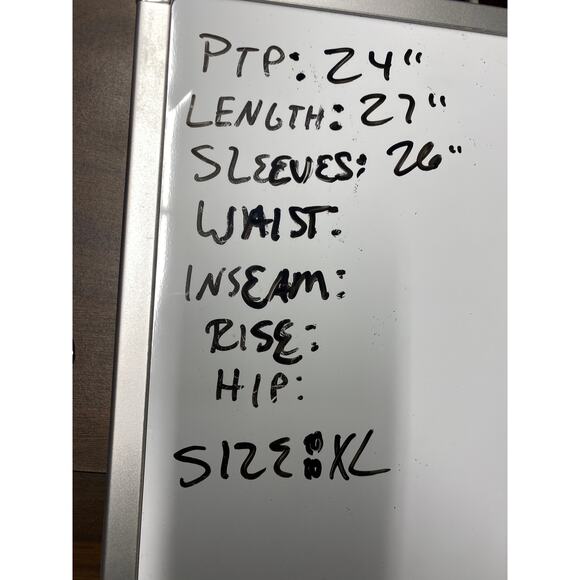 PTP: 24"
LENGTH: 27"
SLEEVES: 26"
WAIST:
INSEAM:
RISE:
HIP:
SIZE: XL